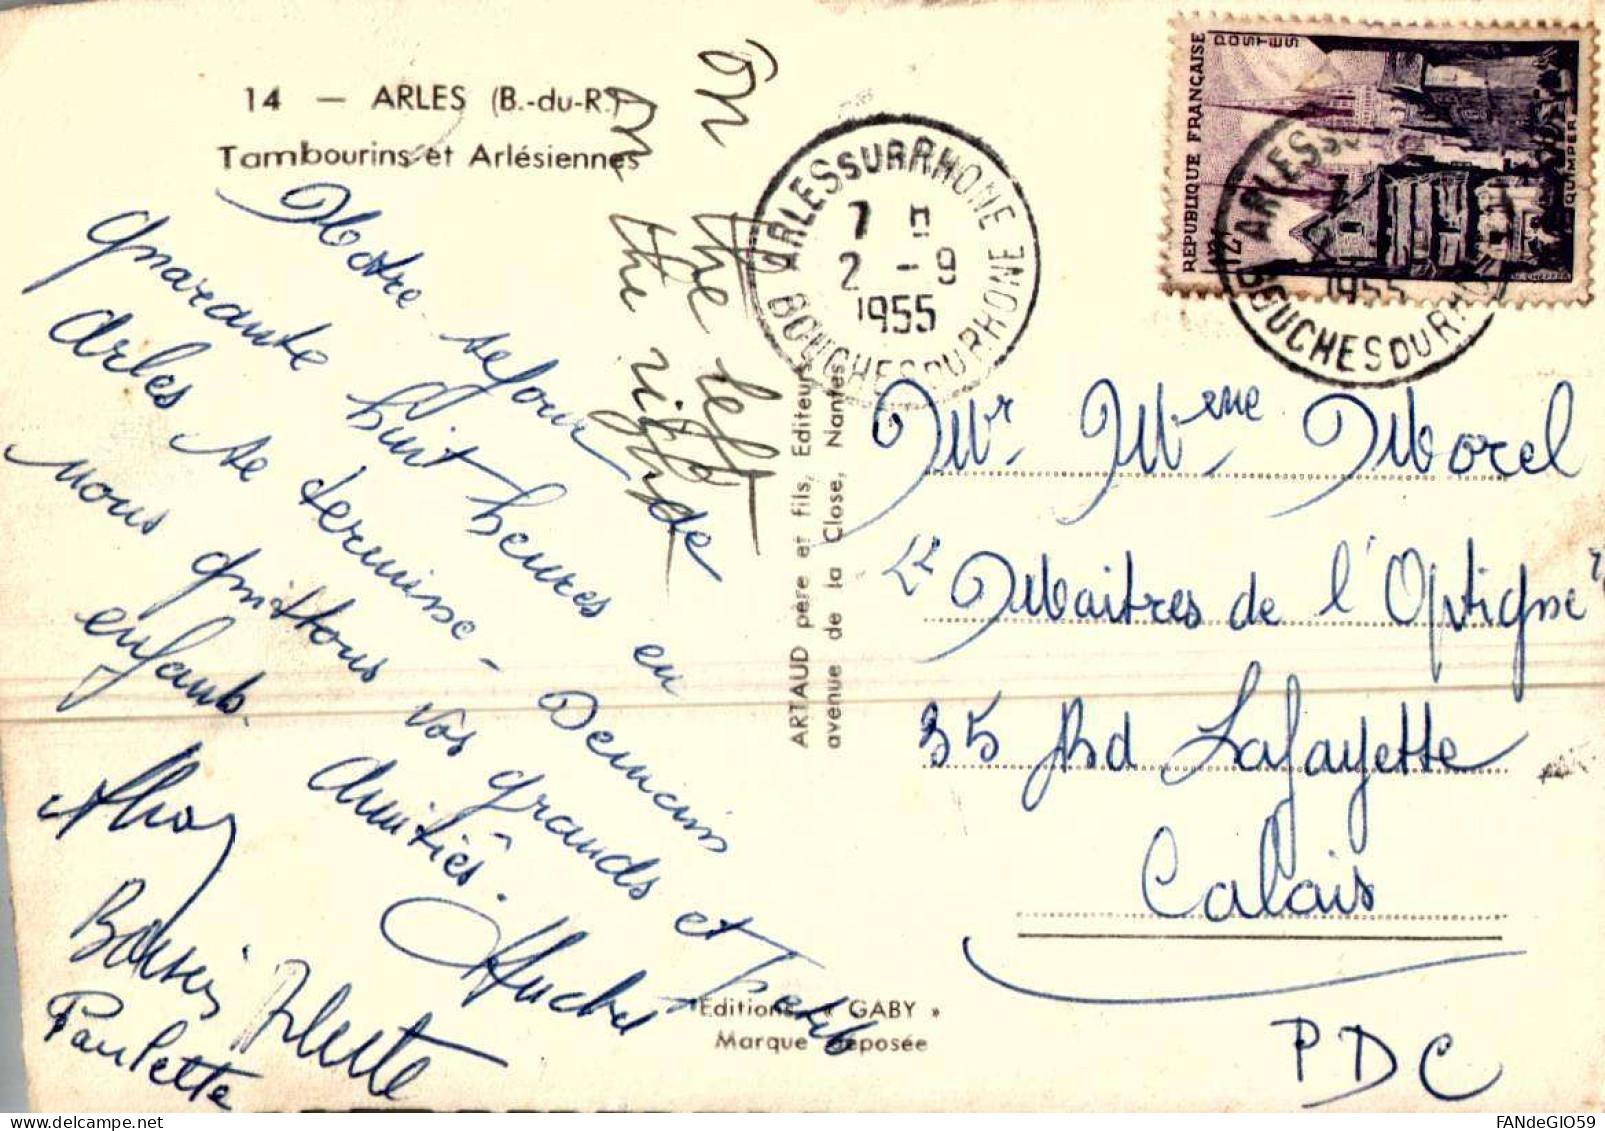 14 — ARLES (B.-du-R.)
Tambourins et Arlésiennes
on the left
on the right
Notre séjour de
quarante huit heures en
Arles se termine - Demain
nous quittons vos grands et petits
enfants.
Amitiés.
Paulette
ARTAUD père et fils, Editeurs
avenue de la Close, Nantes
Editions « GABY »
Marque déposée
ARLES SUR RHONE
7 H
2 - 9
1955
BOUCHES DU RHONE
REPUBLIQUE FRANÇAISE
POSTES
12F
QUIMPER
ARLES SUR
1955
BOUCHES DU RHONE
Mr Mme Morel
"Maitres de l'Optique"
35 Bd Lafayette
Calais
PDC
FANdeGIO59